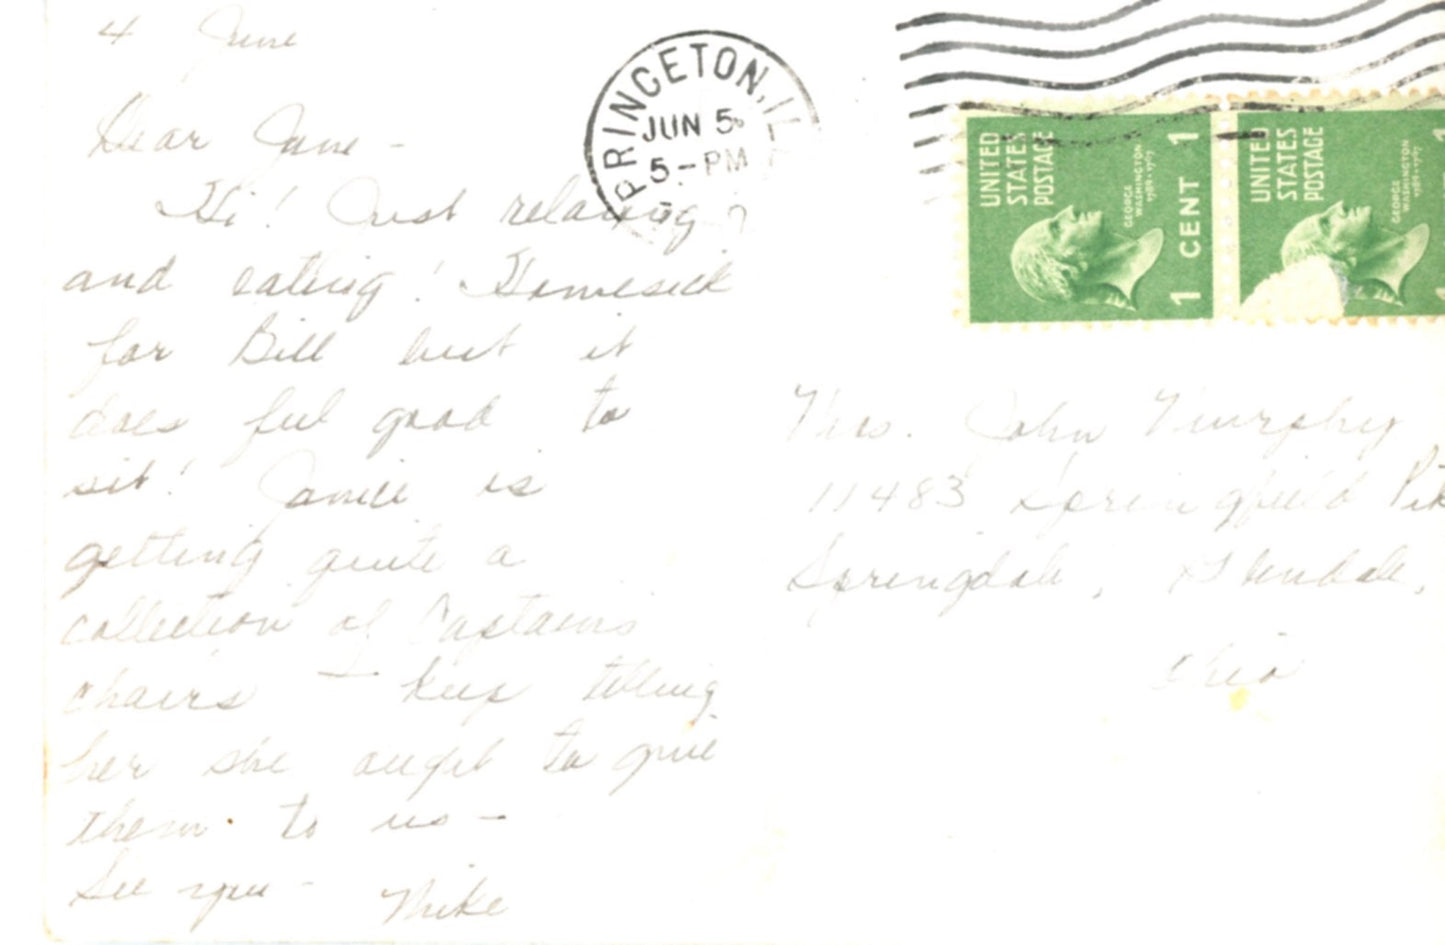 4 June
Dear Jane -
Hi! Just relaxing
and eating! Homesick
for Bill but it
does feel good to
sit! Janice is
getting quite a
collection of Captains
chairs - keep telling
her she ought to give
them to us -
See you - Mike
PRINCETON, ILL
JUN 5
5-PM
UNITED
STATES
POSTAGE
GEORGE
WASHINGTON
1789-1797
1 CENT 1
UNITED
STATES
POSTAGE
GEORGE
WASHINGTON
1789-1797
1
1
Mrs. John Murphy
11483 Springfield Pik
Springdale, Glendale,
Ohio